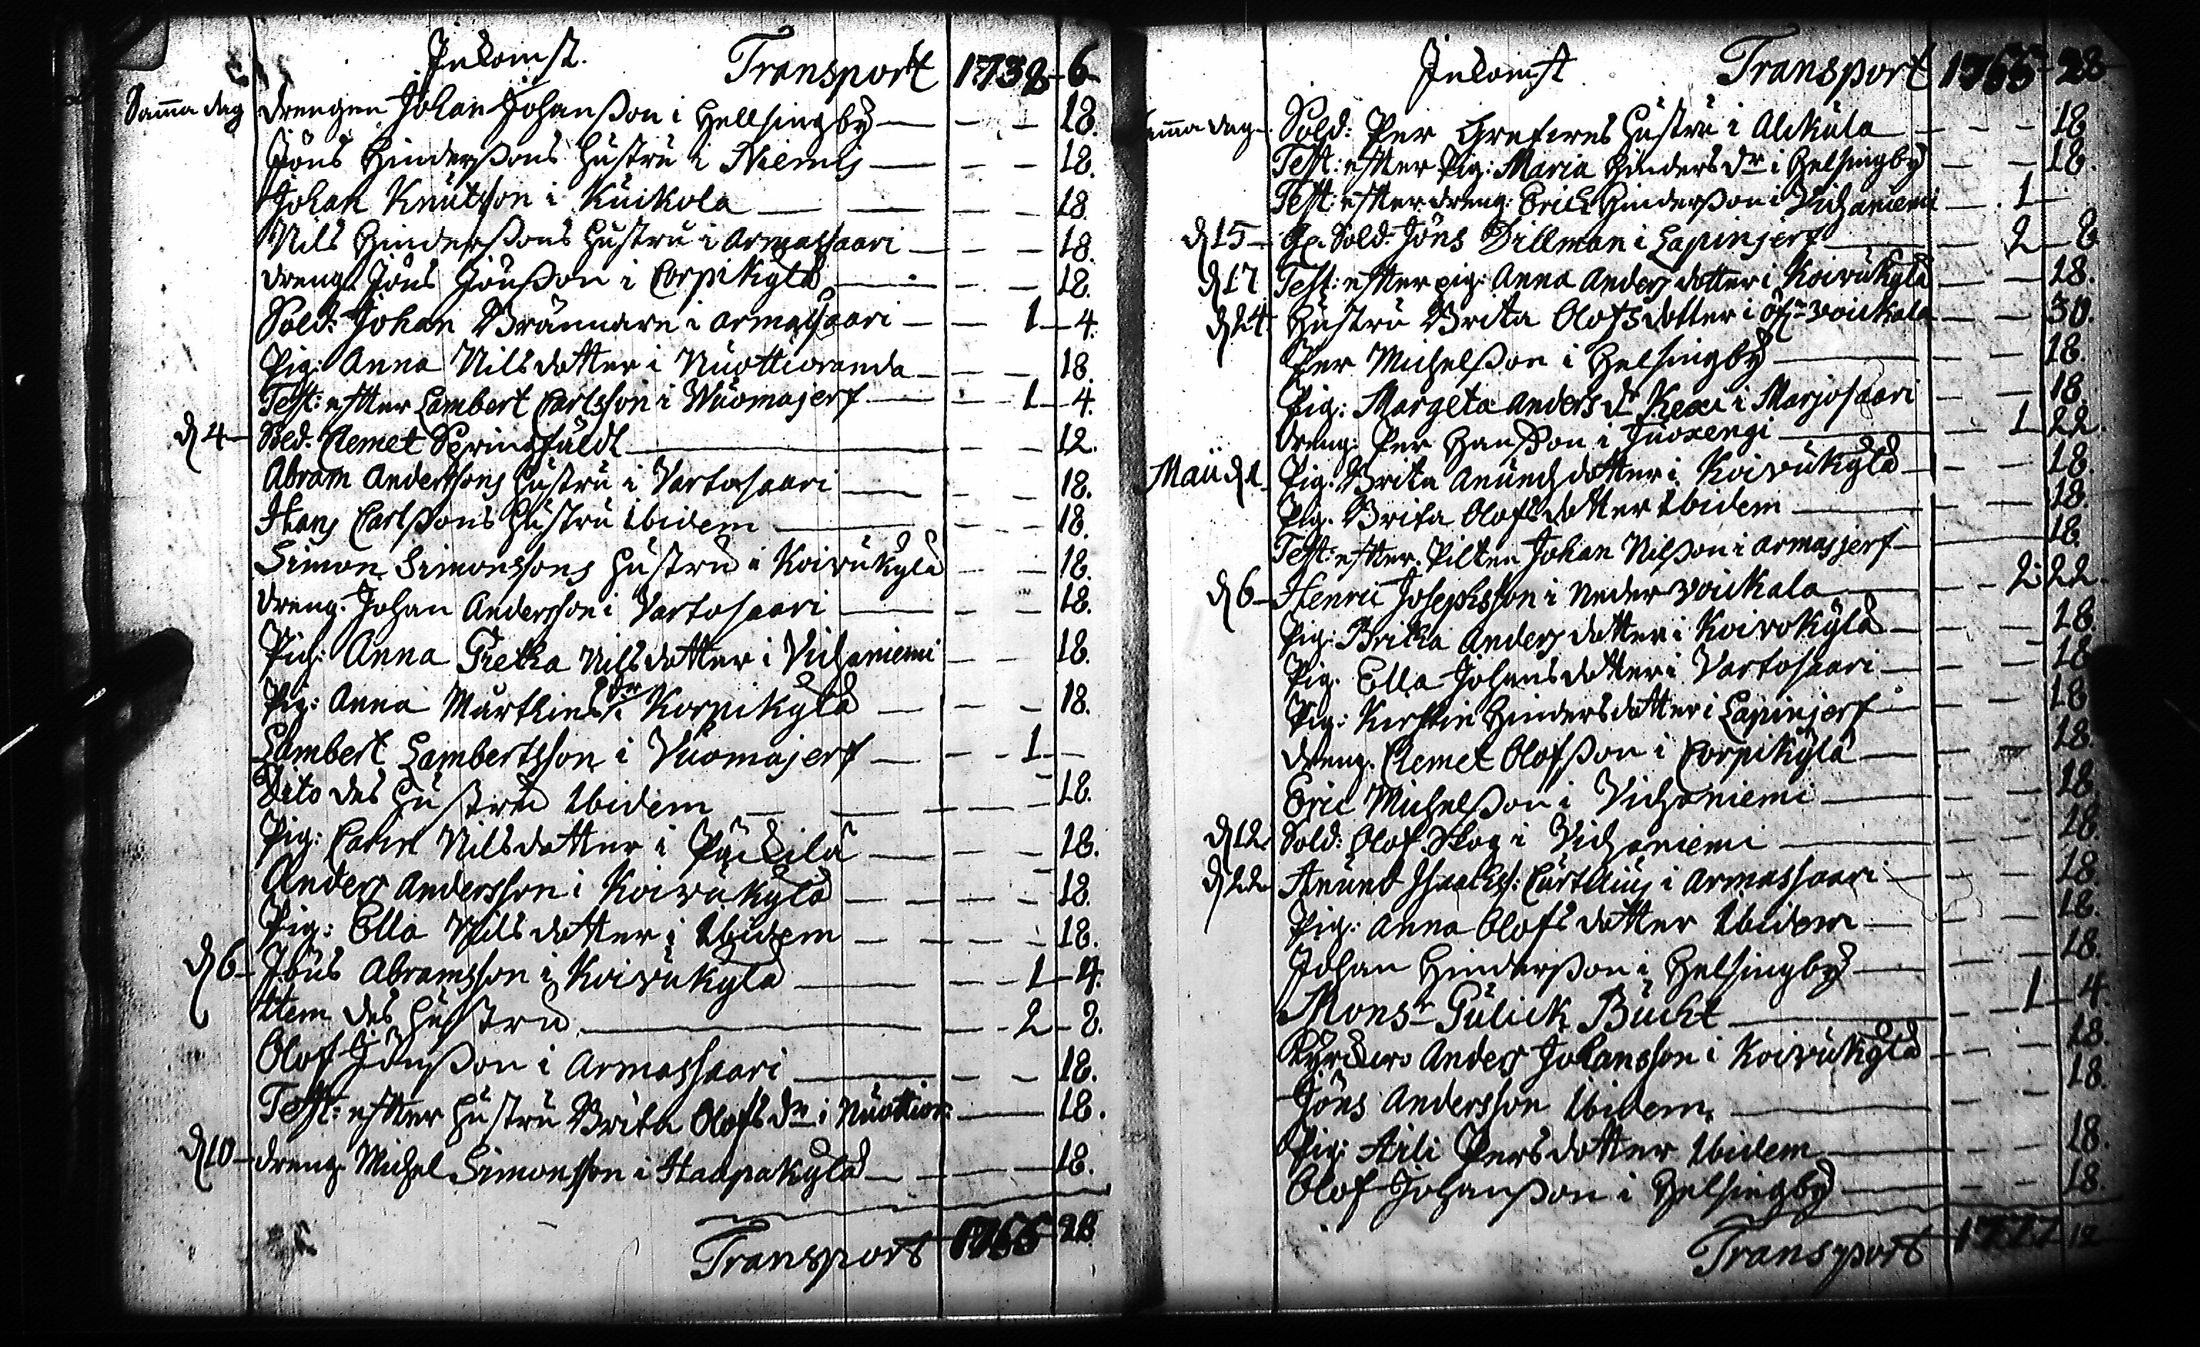 Inkomst. Transport 1738 - 6
Samma dag drengen Johan Johanßon i Hellsingby — — — 18.
Jöns Hinderßons hustru i Niemis — — — 18.
Johan Knutsson i Kuikola — — — 18
Nils Hinderßons hustru i Armassaari — — — 18.
dreng. Jöns Jönßon i Corpikylä — — — 18.
Sold: Johan Brännare i armassaari — — 1 — 4.
Pig: Anna Nilsdotter i Nuottioranda — — — 18.
Test: efter Lambert Carlsson i Wuomajerf — — 1 — 4.
d 4 — Sold. Clemet Springfäldt — 12.
Abram Anderssons hustru i Vartosaari — — — 18.
Hans Carlßons hustru Ibidem — — — 18.
Simon Simonssons hustru i Koivukylä — — 18.
dreng. Johan Andersson i Vartosaari — — — 18.
Pig: Anna Greta Nilsdotter i Vichaniemi — — 18.
Pig: Anna Marthins dr i Korpikylä — — — 18.
Lambert Lambertsson i Vuomajerf — — 1 —
Dito des hustru Ibidem — — — 18.
Pig: Carin Nilsdotter i Päckilä — — — 18.
Anders Andersson i Koivukylä — — — 18.
Pig: Ella Nilsdotter i Ibidem — — — 18.
d 6 — Jöns Abramsson i Koivukylä — — 1 — 4.
Item des hustru — — 2 — 8.
Olof Jönßon i Armassaari — — — 18.
Test: efter hustru Brita Olofs dr i Nuottior — 18.
d 10 — dreng. Michel Simonsson i Haapakylä — — 18.
Transport 1755 28
Inkomst Transport 1755 - 28
Samma dag. Sold: Per Grefvres hustru i Alkula — — — 18
Test: efter Pig: Maria Hinders dr i Helsingby — — 18.
Test: efter dreng: Erich Hinderßon i Vichaniemi — 1 —
d 15 — Sold. Jöns Dillman i Lapinjerf — 2 — 8
d 17 Test: efter pig: Anna Anders dotter i Koivukylä — — 18.
d 24 Hustru Brita Olofsdotter i öfr voickala — — 30.
Per Michelßon i Helsingby — — — 18.
Pig: Margeta Anders dr Kexi i Marjosaari — — 18.
dreng: Per Hanßon i Juoxengi — 1 22.
Maii d 1 Pig: Brita Anunds dotter i Koivukylä — — — 18.
Pig. Brita Olofsdotter Ibidem — — — 18.
Test: efter: Pilten Johan Nilßon i armasjerf — 18.
d 6 — Henric Josephsson i Neder voickala — — 2 22.
Pig: Britha Anders dotter i Koivokylä — — — 18.
Pig. Ella Johansdotter i Vartosaari — — — 18
Pig: Kirstin Hindersdotter i Lapinjerf — — — 18
dreng. Clemet Olofsson i Corpikylä — — — 18.
Eric Michelßon i Vichaniemi — — — 18.
d 12. Sold: Olof Skog i Vichaniemi — — — 18.
d 22 Anund Isaachss: Curtelius i Armassaari — — — 18.
Pig: Anna Olofs dotter Ibidem — — — 18.
Johan Hinderßon i Helsingby — — — 18.
Monsr Gulick Bucht — — 1 — 4.
Anders Johansson i Koivukylä — — — 18.
Jöns Andersson Ibidem. — — — 18.
Pig: Aili Persdotter Ibidem — — — 18.
Olof Johanßon i Helsingby — — — 18.
Transport 1777 12